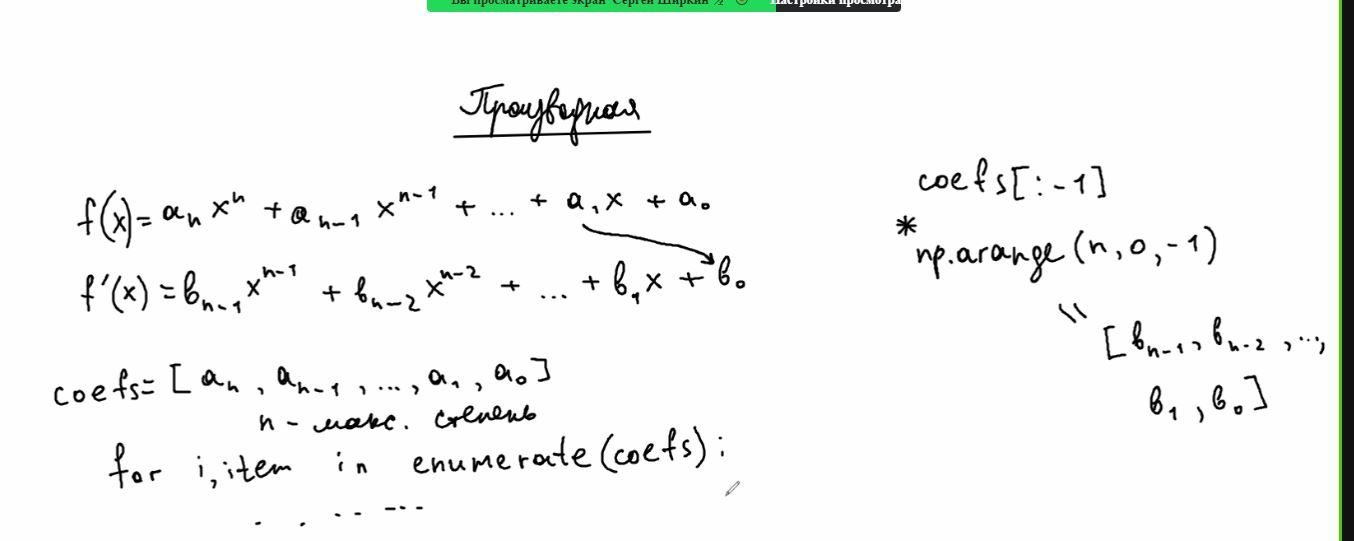 Вы просматриваете экран Сергей Ширкин
Настройки просмотра
Производная
f(x) = aₙ xⁿ + aₙ₋₁ xⁿ⁻¹ + ... + a₁ x + a₀
f'(x) = bₙ₋₁ xⁿ⁻¹ + bₙ₋₂ xⁿ⁻² + ... + b₁ x + b₀
coefs = [aₙ, aₙ₋₁, ..., a₁, a₀]
n - макс. степень
for i, item in enumerate(coefs):
. . -- ---
coefs[:-1]
*
np.arange(n, 0, -1)
\\
[bₙ₋₁, bₙ₋₂, ...,
b₁, b₀]